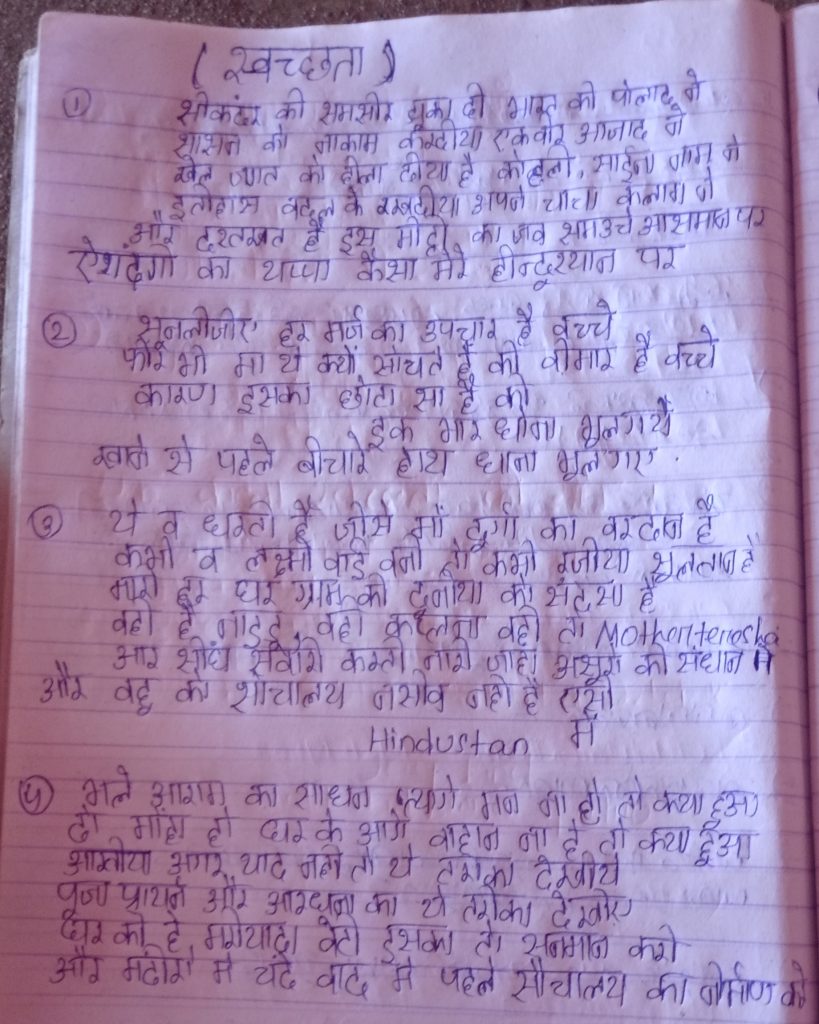 ( स्वच्छता )
① सीकंदर की समसीर झुका दी भारत की पोलाद ने
शासन को नाकाम करदीया एकवीर आजाद ने
खेल जगत को हीला दीया है कोहली, साईना नाम ने
इतीहास बदल के रखदीया अपने चाचा कलाम ने
और दस्तखत है इस मीट्टी का जब समउचे आसमान पर
ऐशंदगी का थप्पा कैसा मेरे हीन्दूस्थान पर
② सूनलीजीए हर मर्ज का उपचार है बच्चे
फीर भी मा ये क्यों सोचते है की बीमार है बच्चे
कारण इसका छोटा सा है की
इक बार धोना भूलगये
खाने से पहले बीचारे हाथ धोना भूलगए.
③ ये व धरती है जीसे माँ दूर्गा का वरदान है
कभी व लक्ष्मी बाई बनी तो कभी रजीया सूलतान है
नारी हर घर ग्राम की दूनीया को संदेसा है
वही है नाइडू, वही कल्पना वही तो Mother teresha
और सींघ सवारी करती नारी जाहा असूरो की संधान में
और बहू को शौचालय नसीब नही है एसी
Hindustan में
④ भले आराम का साधन त्यागे मन ना हो तो क्या हूआ
दो माहा हो घर के आगे वाहान ना है तो क्या हूआ
आखीया अगर याद नही तो ये तरीका देखीये
पूजा प्राथने और आरधना का ये तरीका देखीए
घर की है मरीयादा बेटी इसका तो सनमान करो
और मंदीरो में चंदे बाद मे पहले सौचालय का नीर्माण करो